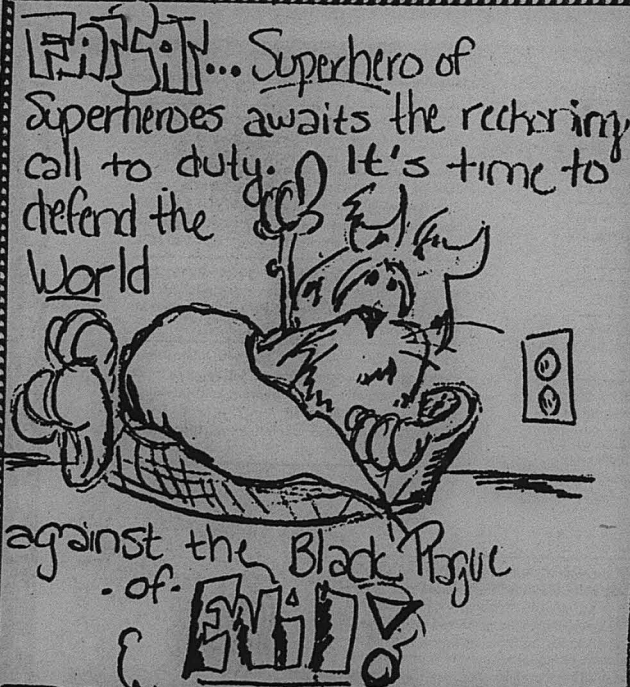 FATSAT... Superhero of
Superheroes awaits the reckoning
call to duty. It's time to
defend the
World
against the Black Plague
. of .
EVil!